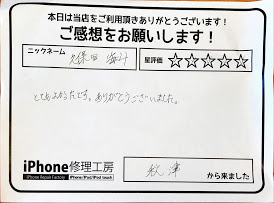 本日は当店をご利用頂きありがとうございます！
ご感想をお願いします！
ニックネーム 久保田 海斗
星評価 ☆☆☆☆☆
とてもよかったです。ありがとうございました。
iPhone修理工房
iPhone Repair Factory iPhone/iPad/iPod touch
から来ました